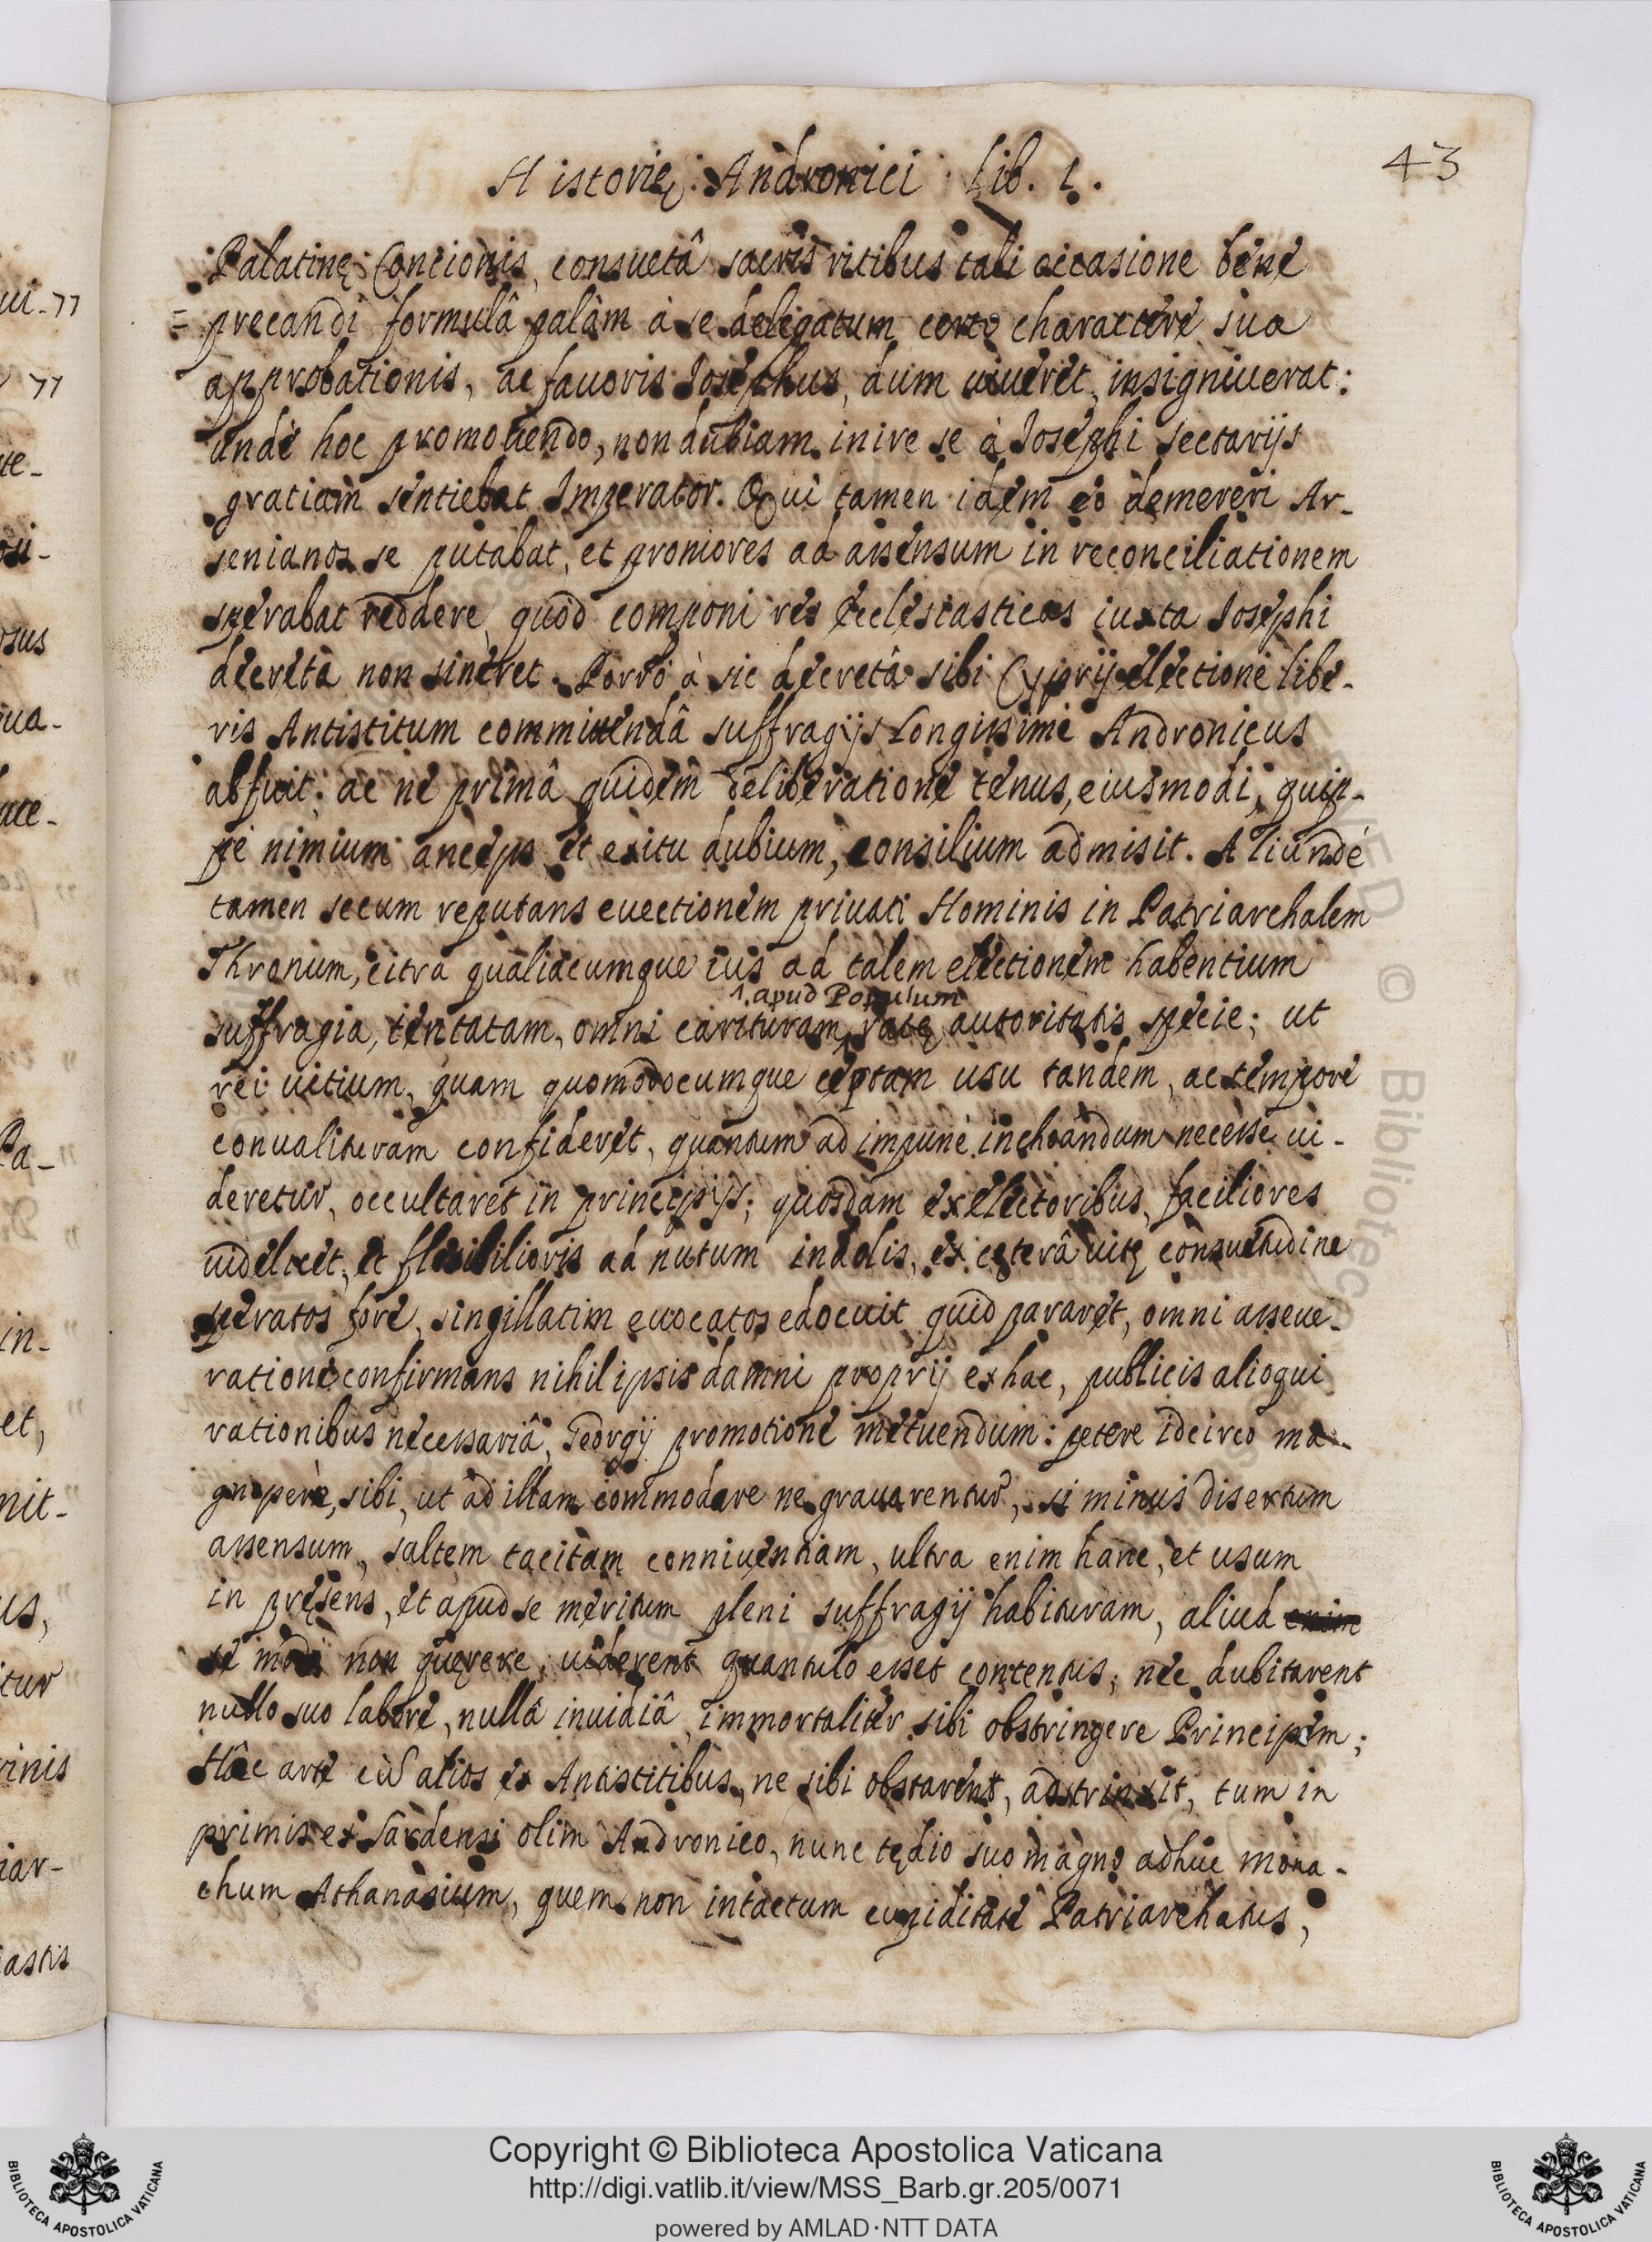 Historię Andronici Lib. 1.
43
Palatinę Concionis, consuetâ sacris ritibus tali occasione bene
precandi formulâ palàm à se delegatum certo charactere suæ
approbationis, ac fauoris Iosephus, dum uiueret, insigniuerat:
unde hoc promouendo, non dubiam inire se à Iosephi sectarijs
gratiam sentiebat Imperator. Qui tamen idem eo demereri Ar-
senianos se putabat, et proniores ad assensum in reconciliationem
sperabat reddere, quòd componi res Ecclesiasticas iuxta Iosephi
decreta non sineret. Porrò à sic decretâ sibi Cyprij electione libe-
ris Antistitum committendâ suffragijs longissime Andronicus
abfuit: ac ne primâ quidem deliberatione tenus, eiusmodi, quip-
pe nimium anceps, et exitu dubium, consilium admisit. Aliunde
tamen secum reputans euectionem priuati Hominis in Patriarchalem
Thronum, citra qualiacumque ius ad talem electionem habentium
suffragia, tentatam, omni carituram ratę autoritatis specie; ut
1. apud Populum
rei uitium, quam quomodocumque cęptam usu tandem, ac tempore
conualituram confideret, quantum ad impune inchoandum necesse ui-
deretur, occultaret in principijs; quosdam ex electoribus, faciliores
uidelicet, et flexibilioris ad nutum indolis, ex cęterâ uitę consuetudine
speratos fore, singillatim euocatos edocuit quid pararet, omni asseue-
ratione confirmans nihil ipsis damni proprij ex hac, publicis alioqui
rationibus necessariâ, Georgij promotione metuendum: petere idcirco ma-
gnopere, sibi, ut ad illam commodare ne grauarentur, si minus disertum
assensum, saltem tacitam conniuentiam, ultra enim hanc, et usum
in pręsens, et apud se meritum pleni suffragij habituram, aliud enim
se modi non quęrere; uiderent quantulo esset contentus; nec dubitarent
nullo suo labore, nullâ inuidiâ immortaliter sibi obstringere Principem;
Hâc arte cùm alios ex Antistitibus, ne sibi obstarent, adstrinxit, tum in
primis ex Sardensi olim Andronico, nunc tędio suo magno adhuc mona-
chum Athanasium, quem non intactum cupiditate Patriarchatus,
Copyright © Biblioteca Apostolica Vaticana
http://digi.vatlib.it/view/MSS_Barb.gr.205/0071
powered by AMLAD·NTT DATA
BIBLIOTECA APOSTOLICA VATICANA
BIBLIOTECA APOSTOLICA VATICANA